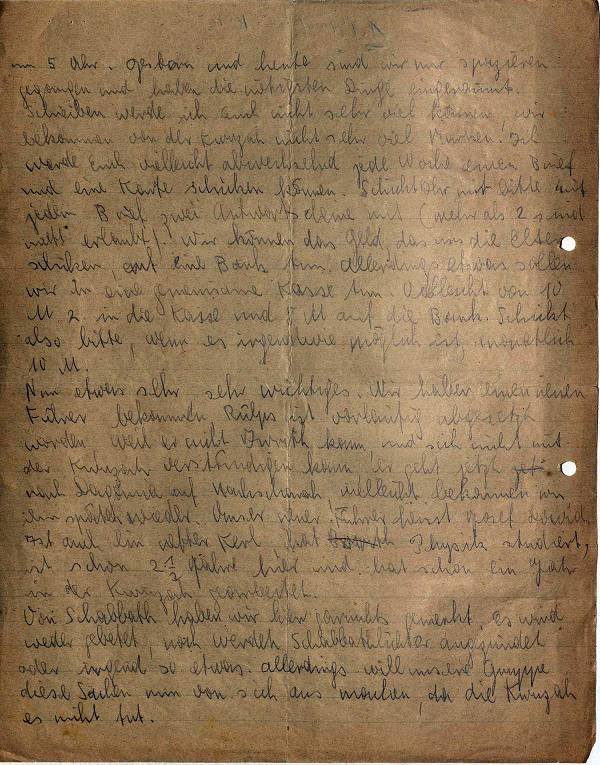 um 5 Uhr. Gestern und heute sind wir nur spazieren
gegangen und haben die nötigsten Dinge eingeräumt.
Schreiben werde ich Euch nicht sehr viel können, wir
bekommen von der Kwuzah nicht sehr viel Marken. Ich
werde Euch vielleicht abwechselnd jede Woche einen Brief
und eine Karte schicken können. Schickt Ihr mir bitte mit
jedem Brief zwei Antwortscheine mit (mehr als 2 sind
nicht erlaubt). Wir können das Geld, das uns die Eltern
schicken, auf eine Bank tun. Allerdings etwas sollen
wir in eine gemeinsame Kasse tun. Vielleicht von 10
M 2 in die Kasse und M auf die Bank. Schickt
also bitte, wenn es irgendwie möglich ist, monatlich
10 M.
Nun etwas sehr, sehr wichtiges. Wir haben einen neuen
Führer bekommen. ist vorläufig abgesetzt
worden weil er nicht Iwrith kann, und sich nicht mit
der Kwuzah verständigen kann, er geht jetzt
nach auf vielleicht bekommen wir
ihn später wieder. Unser neuer Führer heisst Josef
Ist auch ein Kerl hat Physik studiert,
ist schon 2 1/2 Jahre hier und hat schon ein Jahr
in der Kwuzah gearbeitet.
Von Schabbath haben wir hier garnichts gemerkt, es wird
weder gebetet, noch werden Schabbathlichter angezündet
oder irgend so etwas. Allerdings will unsere Gruppe
diese Sachen nun von sich aus machen, da die Kwuzah
es nicht tut.